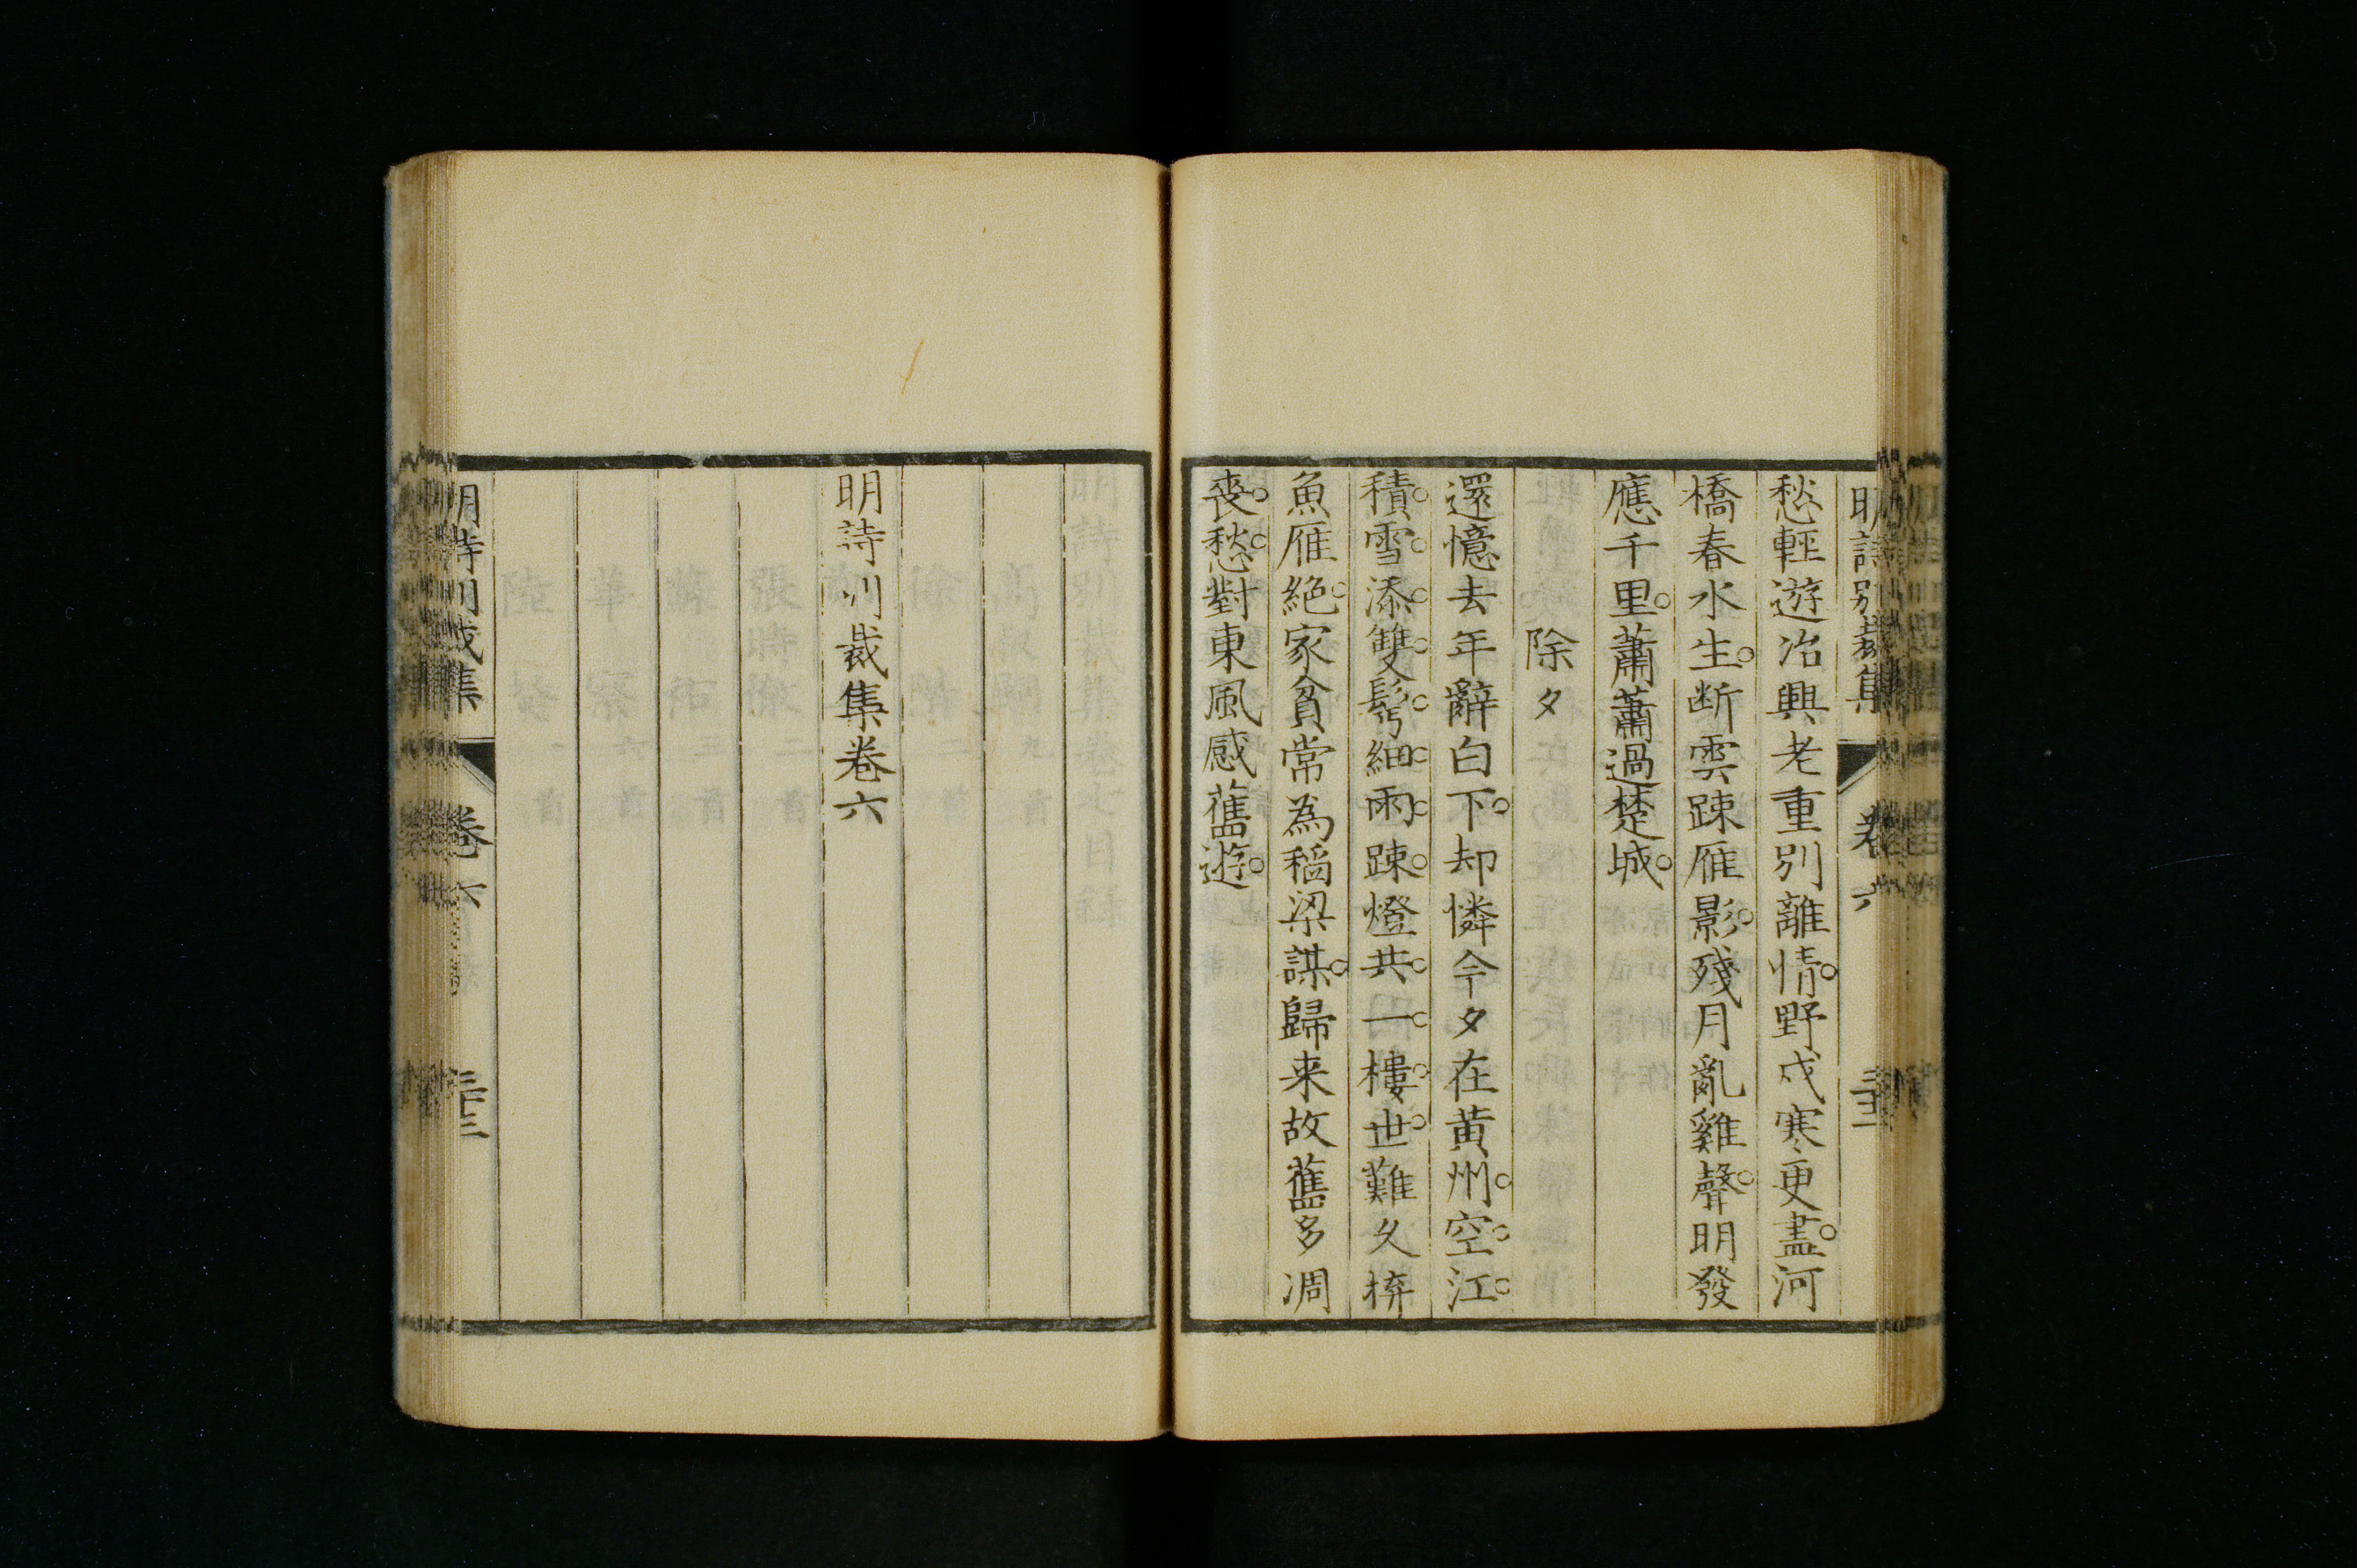 明詩別裁集 卷六 三十二
愁輕遊冶興老重別離情野戍寒更盡河
橋春水生断雲踈雁影殘月亂雞聲明發
應千里蕭蕭過楚城
除夕
還憶去年辭白下却憐今夕在黃州空江
積雪添雙鬢細雨踈燈共一樓世難久捹
魚雁絕家貧常為稻粱謀歸来故舊多凋
喪愁對東風感舊遊
明詩別裁集卷六
明詩別裁集 卷六 三十二